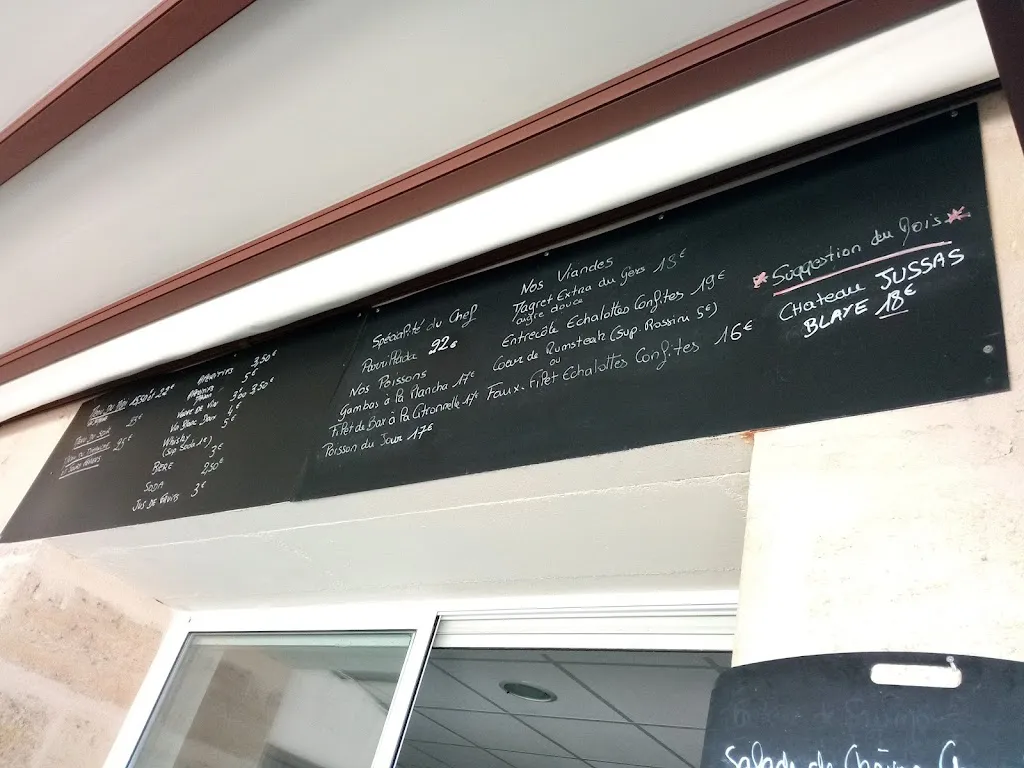 Menu du Midi
25€
Menu du Soir
25€
et Jours Fériés
Apéritifs 3,50€
5€
Verre de Vin 3€ ou 3,50€
Vin Blanc Doux 4€
Whisky 5€
(Sup Soda 1€)
Bière 3€
Soda 2,50€
Jus de Fruits 3€
Spécialité du Chef
Parrillada 22€
Nos Poissons
Gambas à la Plancha 17€
Filet de Bar à la Citronnelle 17€
Poisson du Jour 17€
Nos Viandes
Magret Extra du Gers 18€
aigre douce
Entrecôte Echalottes Confites 19€
Coeur de Rumsteak (Sup. Rossini 5€)
ou
Faux-Filet Echalottes Confites 16€
Suggestion du Mois
Chateau JUSSAS
BLAYE 18€
Salade de Chèvre